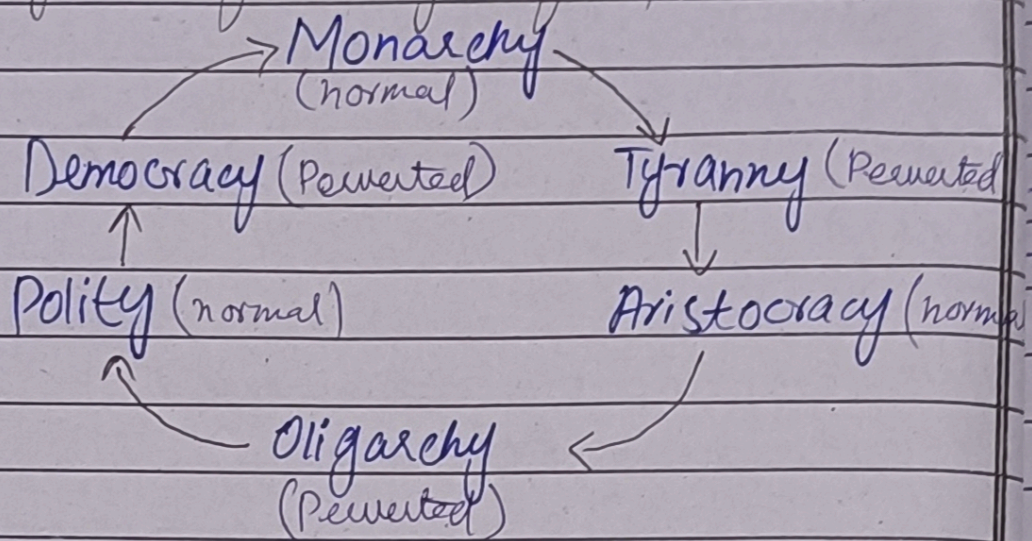 Monarchy
(normal)
Democracy (Perverted)
Tyranny (Perverted
Polity (normal)
Aristocracy (normal
Oligarchy
(Perverted)